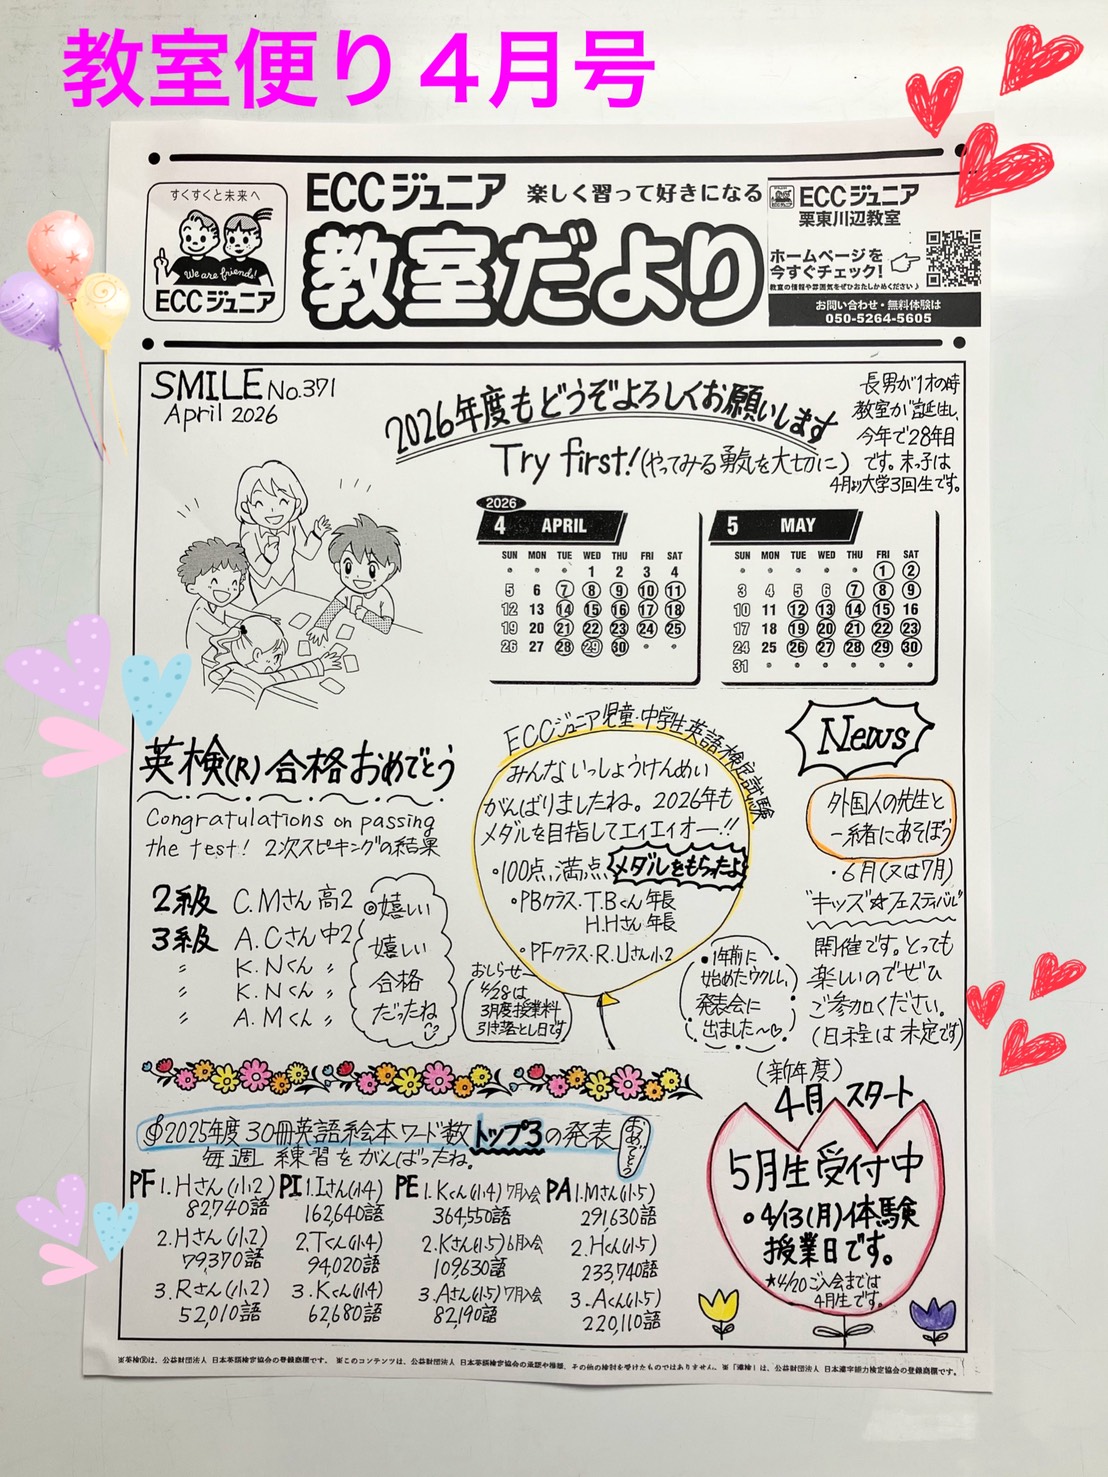 教室便り4月号
すくすくと未来へ
We are friends!
ECCジュニア
ECCジュニア 楽しく習って好きになる
教室だより
ECCジュニア
栗東川辺教室
ホームページを
今すぐチェック!
教室の情報や雰囲気をぜひおたしかめください♪
お問い合わせ・無料体験は
050-5264-5605
SMILE No.371
April 2026
2026年度もどうぞよろしくお願いします
Try first!(やってみる勇気を大切に)
長男が1才の時
教室が誕生し、
今年で28年目
です。末っ子は
4月より大学3回生です。
2026
4 APRIL
SUN MON TUE WED THU FRI SAT
・ ・ ・ 1 2 3 4
5 6 7 8 9 10 11
12 13 14 15 16 17 18
19 20 21 22 23 24 25
26 27 28 29 30 ・ ・
5 MAY
SUN MON TUE WED THU FRI SAT
・ ・ ・ ・ ・ 1 2
3 4 5 6 7 8 9
10 11 12 13 14 15 16
17 18 19 20 21 22 23
24 25 26 27 28 29 30
31 ・ ・ ・ ・ ・ ・
英検(R)合格おめでとう
Congratulations on passing
the test! 2次スピキングの結果
2級 C.Mさん 高2
3級 A.Cさん 中2
〃 K.Nくん 〃
〃 K.Nくん 〃
〃 A.Mくん 〃
◎嬉しい
嬉しい
合格
だったね
ECCジュニア児童・中学生英語検定試験
みんないっしょうけんめい
がんばりましたね。2026年も
メダルを目指してエイエイオー!!
・100点、満点 メダルをもらったよ
・PBクラス・T.Bくん 年長
H.Hさん 年長
・PFクラス・R.Uさん小2
おしらせ
4/28は
3月度授業料
引き落とし日です
・1年前に
始めたウクレレ、
発表会に
出ました〜♡
News
外国人の先生と
一緒にあそぼう
・6月(又は7月)
"キッズ☆フェスティバル"
開催です。とっても
楽しいのでぜひ
ご参加ください。
(日程は未定です)
2025年度 30冊英語絵本ワード数 トップ3の発表
おめでとう
毎週 練習をがんばったね。
PF 1.Hさん(小2)
82,740語
2.Hさん(小2)
79,370語
3.Rさん(小2)
52,010語
PI 1.Iさん(小4)
162,640語
2.Tくん(小4)
94,020語
3.Kくん(小4)
62,680語
PE 1.Kくん(小4)7月入会
364,550語
2.Kさん(小5)6月入会
109,630語
3.Aさん(小5)7月入会
82,190語
PA 1.Mさん(小5)
291,630語
2.Hくん(小5)
233,740語
3.Aくん(小5)
220,110語
(新年度)
4月スタート
5月生受付中
・4/13(月)体験
授業日です。
★4/20ご入会までは
4月生です。
※英検Ⓡは、公益財団法人 日本英語検定協会の登録商標です。 ※このコンテンツは、公益財団法人 日本英語検定協会の承認や推奨、その他の検討を受けたものではありません。 ※「漢検」は、公益財団法人 日本漢字能力検定協会の登録商標です。